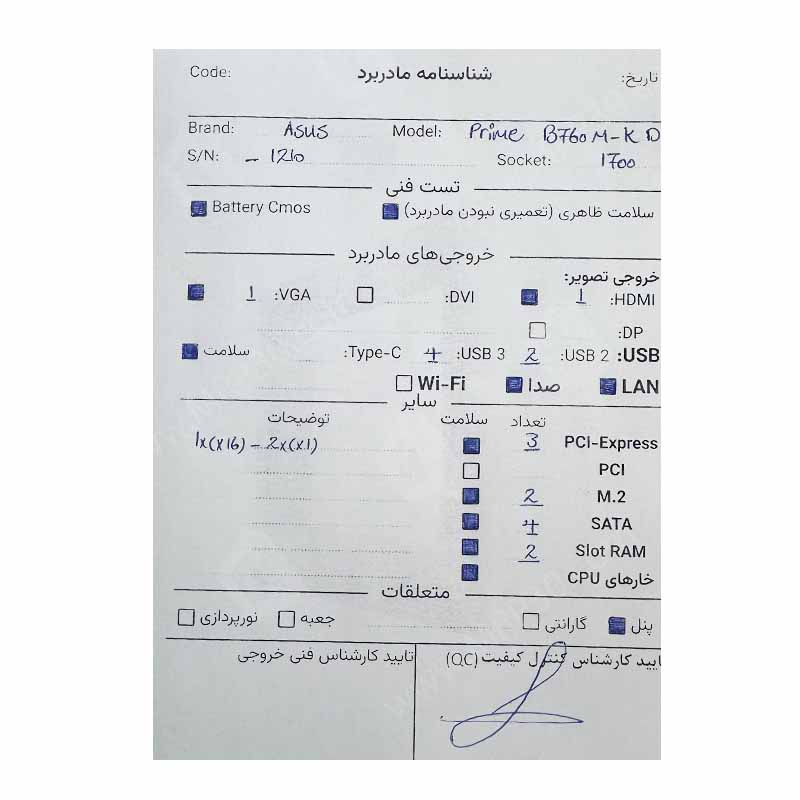 Code: شناسنامه مادربرد تاریخ:
Brand: ASUS Model: Prime B760M-K D
S/N: - 1210 Socket: 1700
تست فنی
سلامت ظاهری (تعمیری نبودن مادربرد) Battery Cmos
خروجی‌های مادربرد
خروجی تصویر:
HDMI: 1 DVI: VGA: 1
DP:
USB: USB 2: 2 USB 3: 4 Type-C: سلامت
LAN صدا Wi-Fi
سایر
تعداد سلامت توضیحات
PCI-Express 3 1x(x16) - 2x(x1)
PCI
M.2 2
SATA 4
Slot RAM 2
خارهای CPU
متعلقات
پنل گارانتی جعبه نورپردازی
تایید کارشناس کنترل کیفیت (QC) تایید کارشناس فنی خروجی